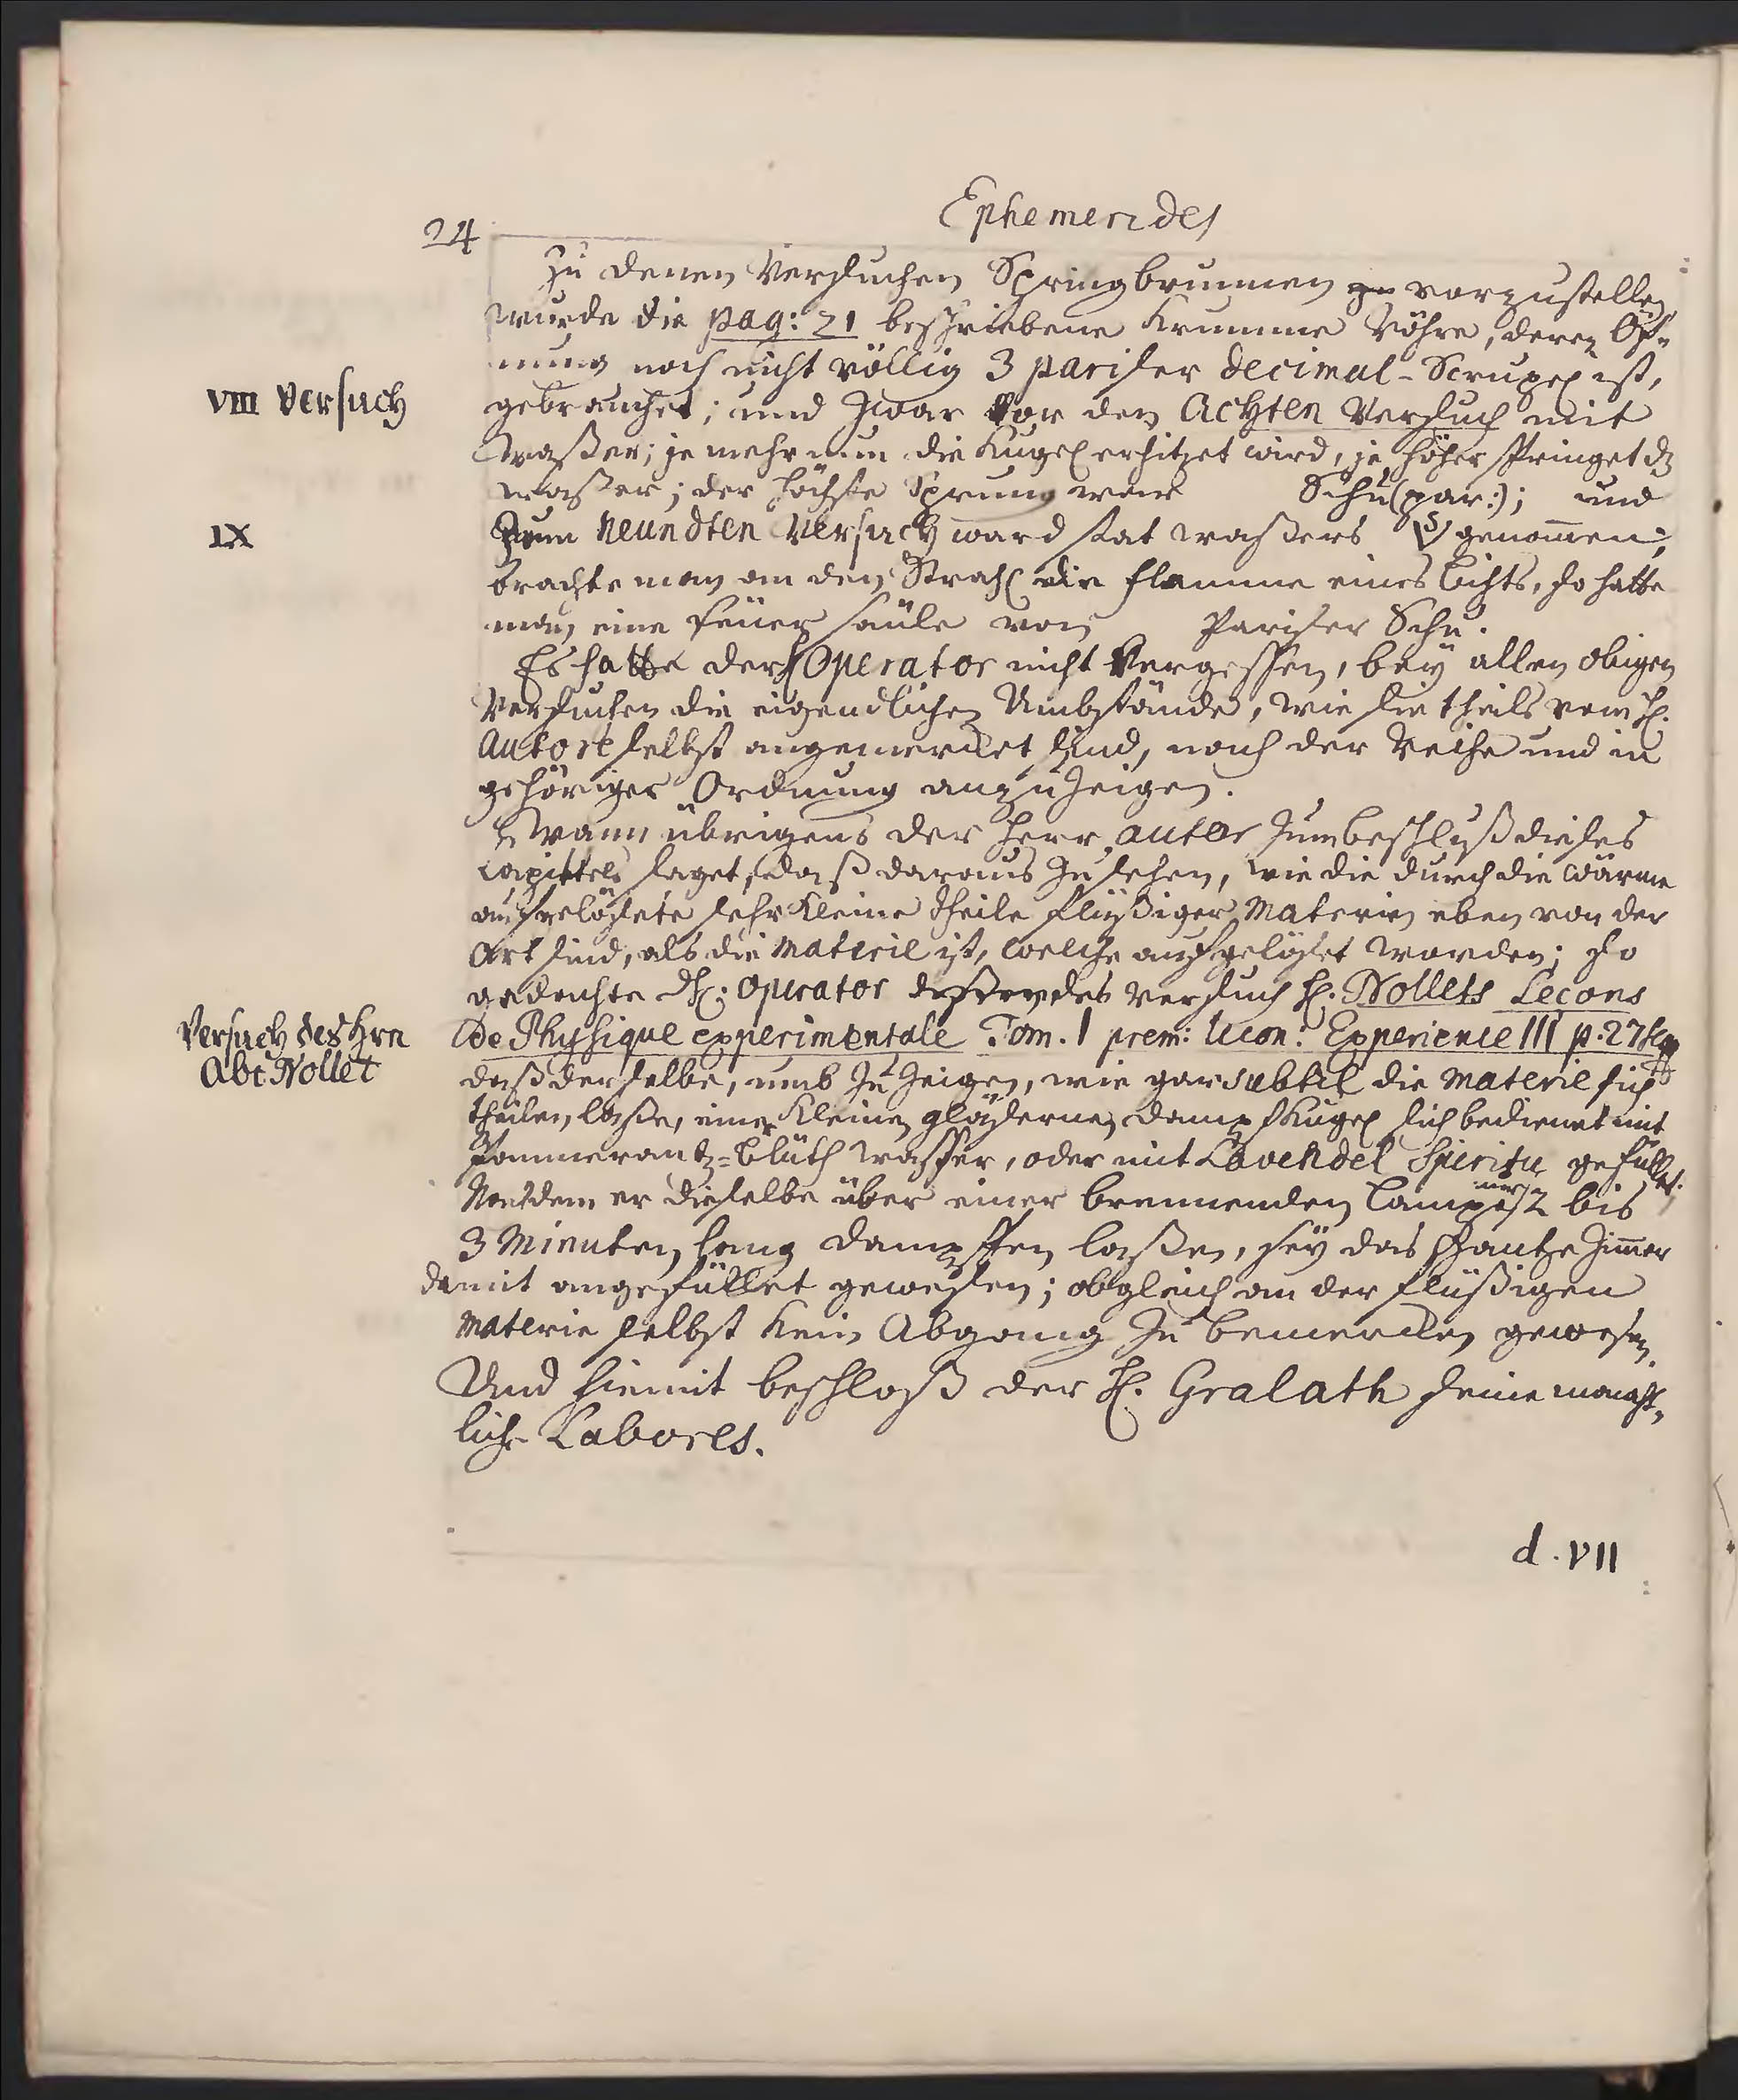 24
Ephemerides
Zu denen Versuchen Springbrunnen zu vorzustellen,
wurde die pag: 21 beschriebene krumme Röhre, deren Öf-
nung noch nicht völlig 3 pariser decimal-Scrupel ist,
VIII Versuch
gebrauchet; und zwar vor den Achten Versuch mit
Waßer; je mehr nun die Kugel erhitzet wird, je höher springet dz
waßer; der höchste Sprung war Schu (par:); und
IX
Zum Neundten Versuch ward stat waßers genom̅en;
brachte man an den Strahl die flamme eines lichts, so hatte
man eine feuer säule von Pariser Schu.
Es hatte der H Operator nicht vergessen, beÿ allen obigen
Versuchen die eigendlichen Umbstände, wie sie theils vom H.
Autore selbst angemercket sind, nach der Reihe und in
gehöriger Ordnung anzuzeigen.
Wann übrigens der Herr autor zum beschluß dieses
Capittels saget, daß daraus zu sehen, wie die durch die wärme
aufgelösete sehr kleine theile flüßiger Materien eben von der
Art sind, als die Materie ist, welche aufgelöset worden; so
gedachte H: Operator des Versuch H. Nollets Lecons
Versuch des Hrn
Abt Nollet
de Physique experimentale Tom. I prem: lecon: Experience III p: 27
daß derselbe, umb zu zeigen, wie gar subtil die Materie sich
theilen laße, einer kleinen gläsernen dampfkugel sich bedienet mit
Pommerantz-blüth wasser, oder mit Lavendel Spiritu gefüllet;
Nachdem er dieselbe über einer brennenden Lampe nur 2 bis
3 Minuten lang dampffen laßen, seÿ das gantze Zim̅er
damit angefüllet gewesen; obgleich an der flüßigen
Materie selbst kein Abgang zu bemercken gewesen.
Und hiemit beschloß der H. Gralath seine monaht-
liche Labores.
d. VII